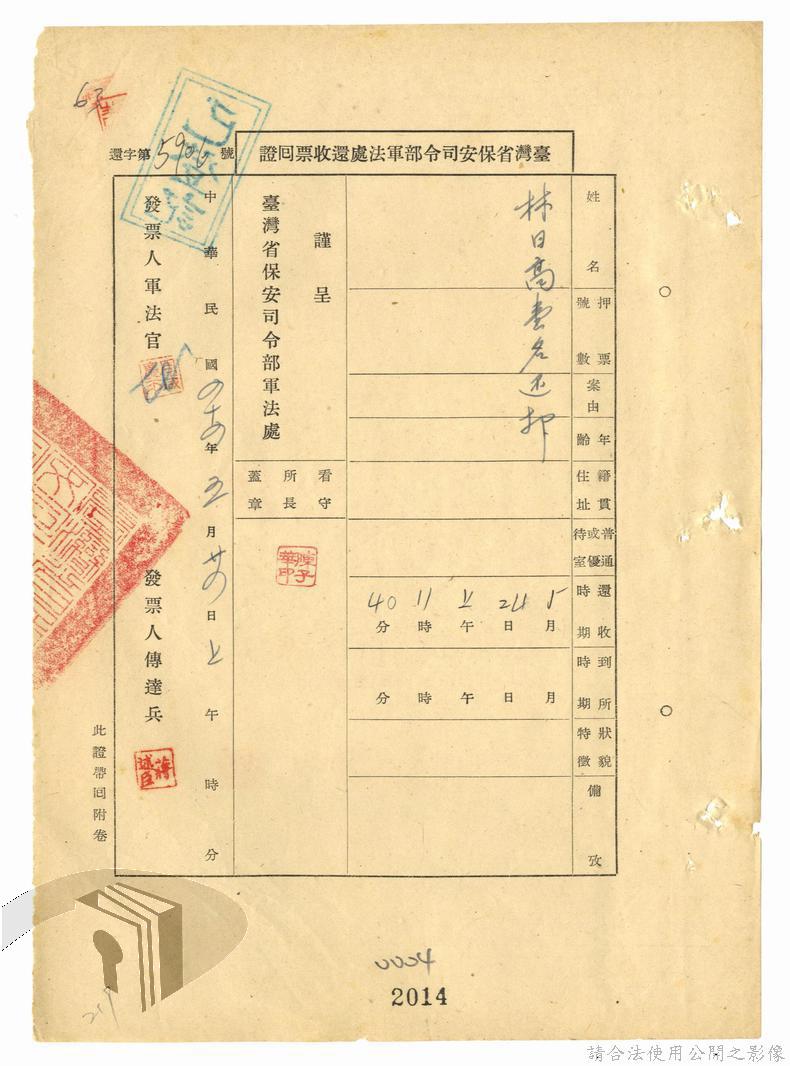 臺灣省保安司令部軍法處還收票回證
還字第5906號
姓名
林日高壹名还押
押票號數
案由
年齡
籍貫住址
普通或優待室
還收時期
5月24日上午11時40分
到所時期
月 日 午 時 分
狀貌特徵
備攷
謹呈
臺灣省保安司令部軍法處
看守所長蓋章
陳子華印
中華民國 年五月廿四日上午 時 分
發票人軍法官
發票人傳達兵
蔣述臣
此證帶回附卷
2014
請合法使用公開之影像